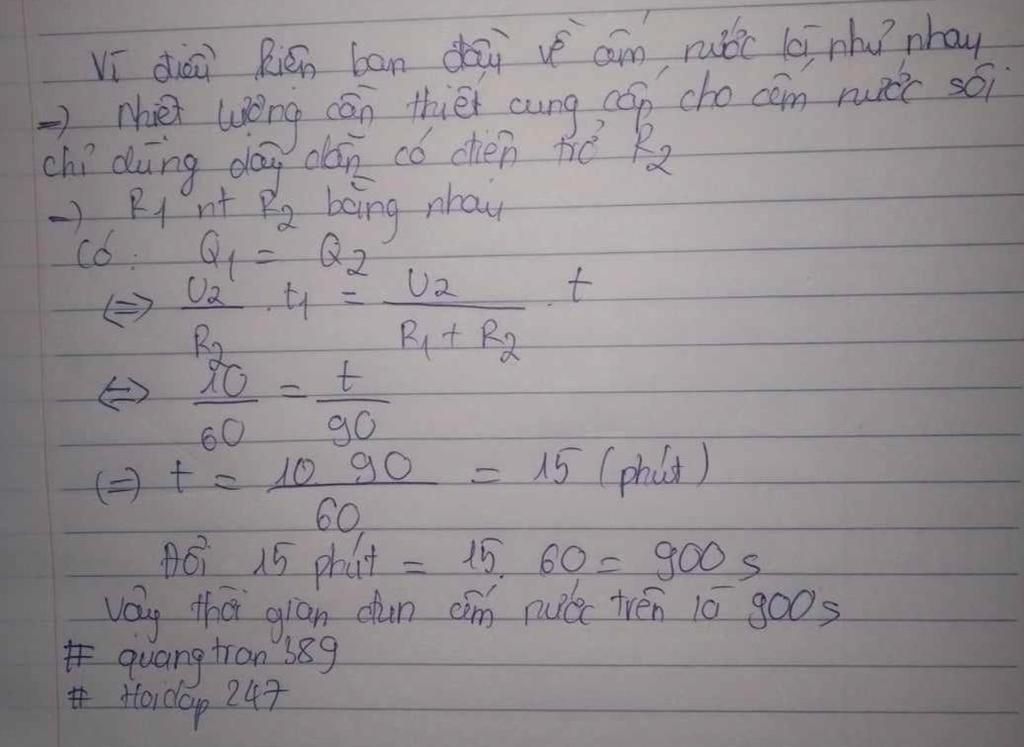 Vì điều kiện ban đầu về ấm nước là như nhau
=) Nhiệt lượng cần thiết cung cấp cho ấm nước sôi
chỉ dùng dây dẫn có điện trở R2
=) R1 nt R2 bằng nhau
Có: Q1 = Q2
<=> U2/R2 . t1 = U2/(R1 + R2) . t
<=> 10/60 = t/90
(=) t = 10 90/60 = 15 (phút)
Đổi 15 phút = 15. 60 = 900 s
Vậy thời gian đun ấm nước trên là 900s
# quangtran389
# Hoidap 247